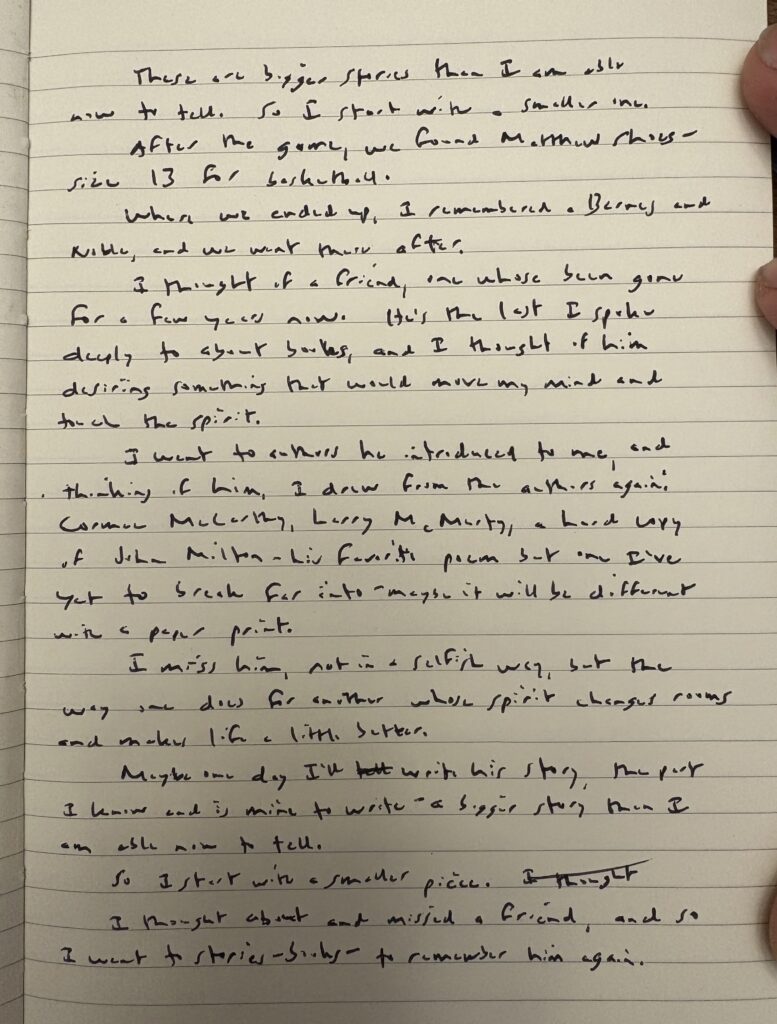 These are bigger stories than I am able
now to tell. So I start with a smaller one.
After the game, we found Matthew shoes-
size 13 for basketball.
Where we ended up, I remembered a Barnes and
Noble, and we went there after.
I thought of a friend, one whose been gone
for a few years now. He's the last I spoke
deeply to about books, and I thought of him
desiring something that would move my mind and
touch the spirit.
I went to authors he introduced to me, and
thinking of him, I drew from the authors again:
Cormac McCarthy, Larry McMurty, a hard copy
of John Milton - his favorite poem but one I've
yet to break far into - maybe it will be different
with a paper print.
I miss him, not in a selfish way, but the
way one does for another whose spirit changes rooms
and makes life a little better.
Maybe one day I'll tell write his story, the part
I know and is mine to write - a bigger story than I
am able now to tell.
So I start with a smaller piece. I thought
I thought about and missed a friend, and so
I went to stories - books - to remember him again.